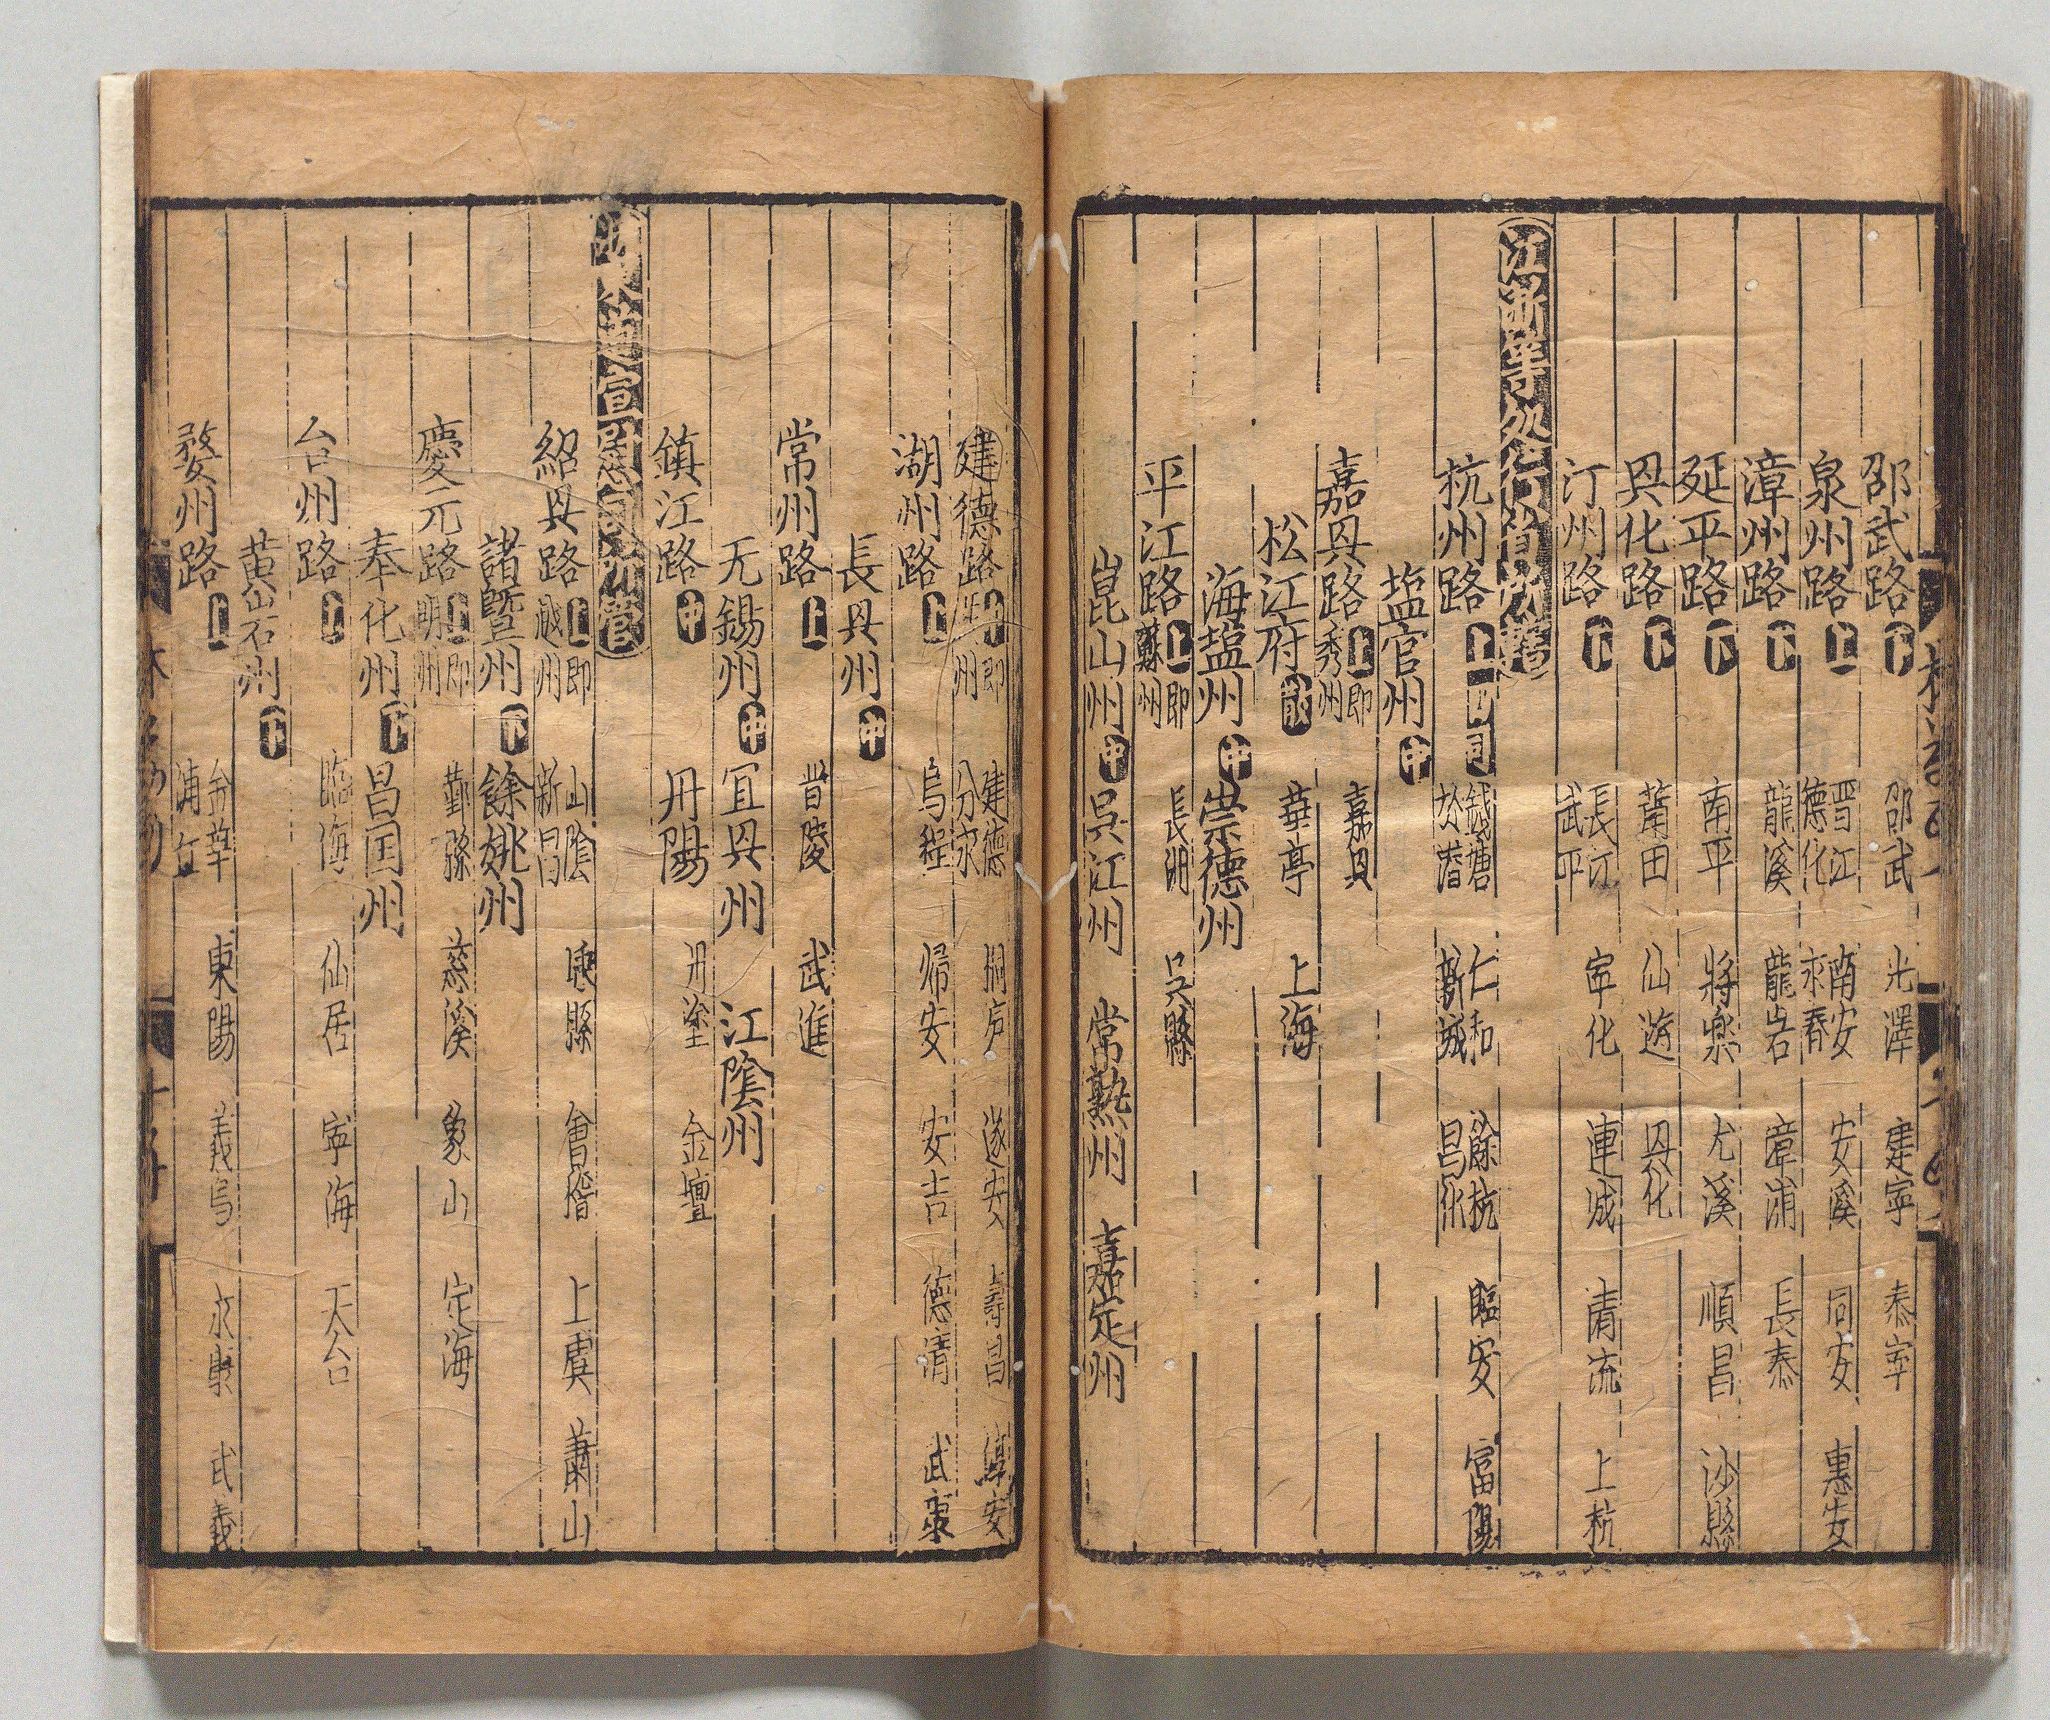 邵武路 下 邵武 光澤 建寧 泰寧
泉州路 上 晋江 南安 安溪 同安 惠安 德化 永春
漳州路 下 龍溪 龍岩 漳浦 長泰
延平路 下 南平 將樂 尤溪 順昌 沙縣
㒷化路 下 莆田 仙遊 㒷化
汀州路 下 長汀 寧化 連城 清流 上杭 武平
江浙等処行省所轄
杭州路 上 四司 錢塘 仁和 餘杭 臨安 富陽 於潜 新城 昌化
塩官州 中
嘉㒷路 上 即秀州 嘉㒷
松江府 散 華亭 上海
海塩州 中 崇德州
平江路 上 即蘇州 長洲 吳縣
崑山州 中 吳江州 常熟州 嘉定州
建德路 即 州 建德 桐庐 遂安 壽昌 淳安 分水
湖州路 上 烏程 帰安 安吉 德清 武康
長㒷州 中
常州路 上 晋陵 武進
无錫州 中 宜㒷州 江陰州
鎮江路 中 丹陽 丹塗 金壇
道宣慰司所管
紹㒷路 上 即越州 山陰 嵊縣 會稽 上虞 蕭山 新昌
諸暨州 下 餘姚州
慶元路 上 即明州 鄞縣 慈溪 象山 定海
奉化州 下 昌国州
台州路 上 臨海 仙居 寧海 天台
黄岩州 下
婺州路 上 金華 東陽 義烏 永康 武義 浦江